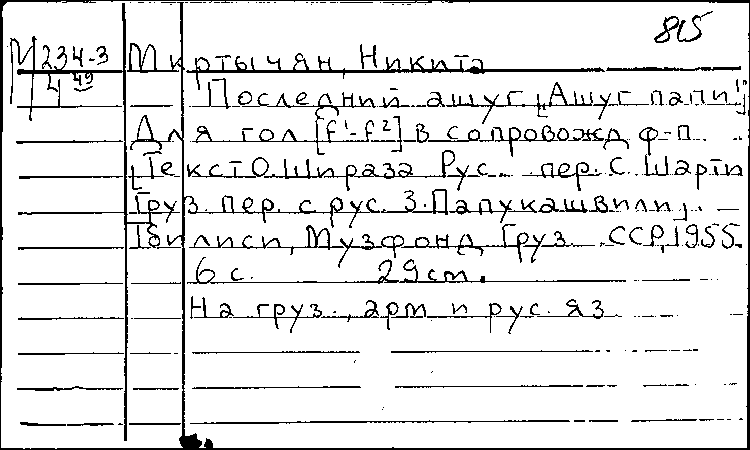 815
М 234-3 Мкртычян, Никита
4 49
Последний ашуг. [Ашуг папи]
Для гол [f¹-f²] в сопровожд ф-п.
[Текст О. Шираза Рус. пер. С. Шарти
Груз. пер. с рус. З. Папукашвили].
Тбилиси, Музфонд Груз. ССР, 1955.
6 с. 29 см.
На груз., арм и рус. яз